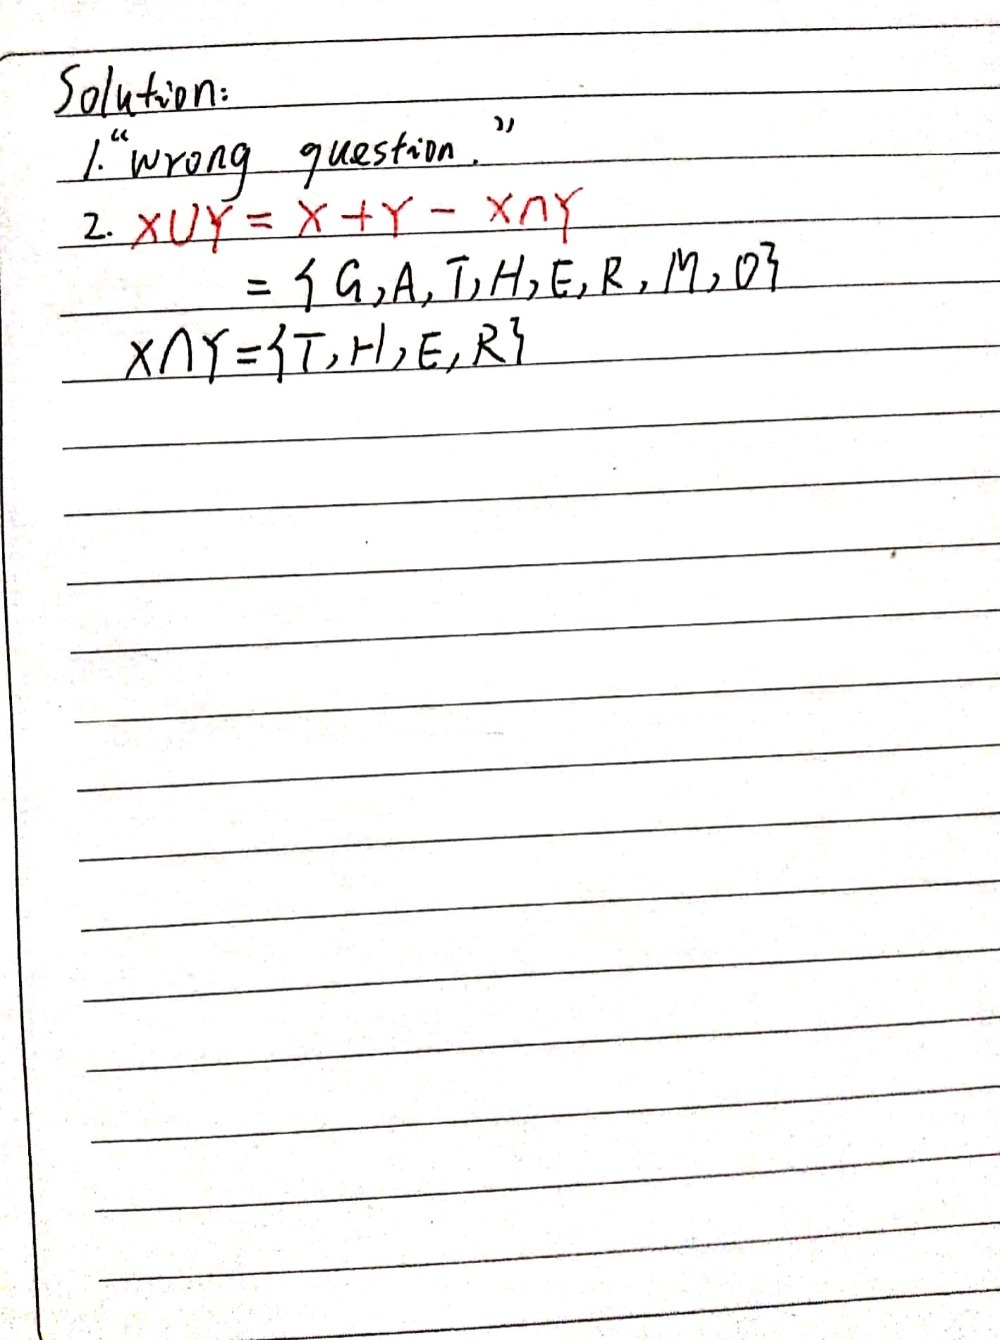 Solution:
1. “Wrong question.”
2. X∪Y = X + Y - X∩Y
= {G, A, T, H, E, R, M, O}
X∩Y = {T, H, E, R}